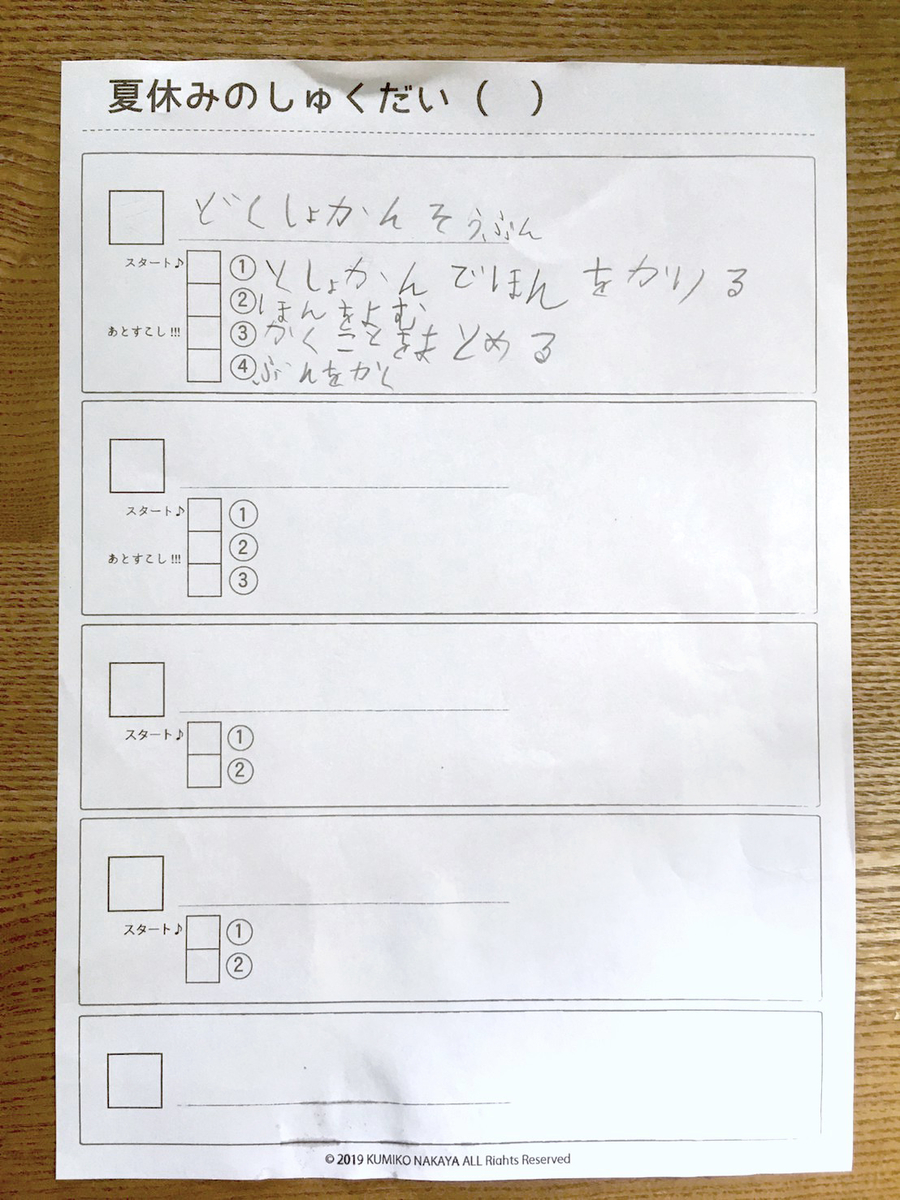 夏休みのしゅくだい（　）
どくしょかんそうぶん
スタート♪ ①としょかんでほんをかりる
②ほんをよむ
あとすこし!!! ③かくことをまとめる
④ぶんをかく
スタート♪ ①
②
あとすこし!!! ③
スタート♪ ①
②
スタート♪ ①
②
© 2019 KUMIKO NAKAYA ALL Riahts Reserved